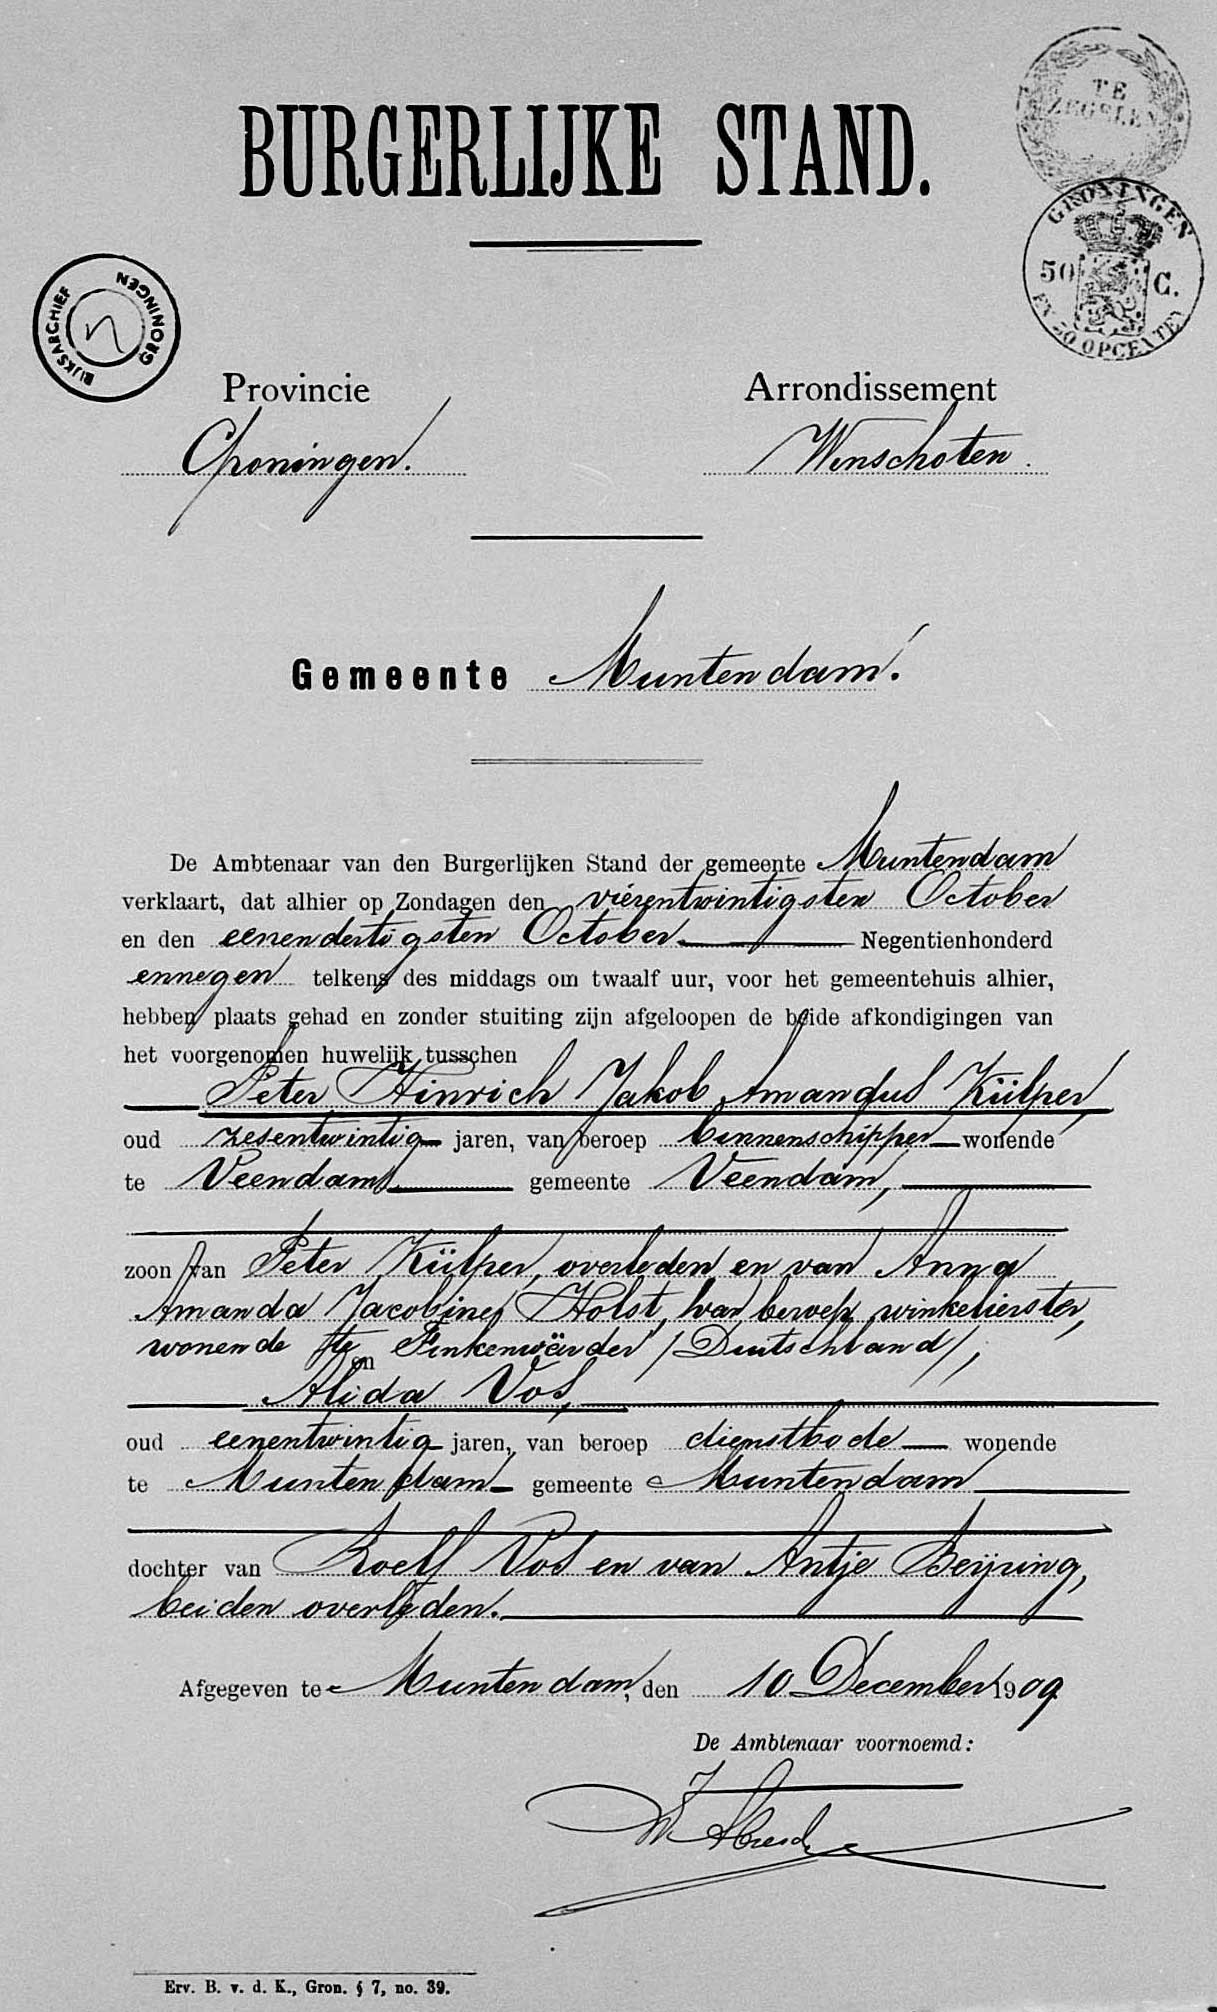 TE
ZEGELEN
BURGERLIJKE STAND.
GRONINGEN
50 C.
EN 50 OPCENTEN
RIJKSARCHIEF GRONINGEN
Provincie
Groningen.
Arrondissement
Winschoten.
Gemeente Muntendam.
De Ambtenaar van den Burgerlijken Stand der gemeente Muntendam
verklaart, dat alhier op Zondagen den vierentwintigsten October
en den eenendertigsten October Negentienhonderd
ennegen telkens des middags om twaalf uur, voor het gemeentehuis alhier,
hebben plaats gehad en zonder stuiting zijn afgeloopen de beide afkondigingen van
het voorgenomen huwelijk tusschen
Peter Hinrich Jakob Amandus Külper,
oud zesentwintig jaren, van beroep binnenschipper wonende
te Veendam, gemeente Veendam,
zoon van Peter Külper, overleden en van Anna
Amanda Jacobine Holst, van beroep winkelierster,
wonende te Finkenwärder /Duitschland/,
en
Alida Vos,
oud eenentwintig jaren, van beroep dienstbode wonende
te Muntendam gemeente Muntendam
dochter van Roelf Vos en van Antje Beijring,
beiden overleden.
Afgegeven te Muntendam, den 10 December 1909
De Ambtenaar voornoemd:
Erv. B. v. d. K., Gron. § 7, no. 39.